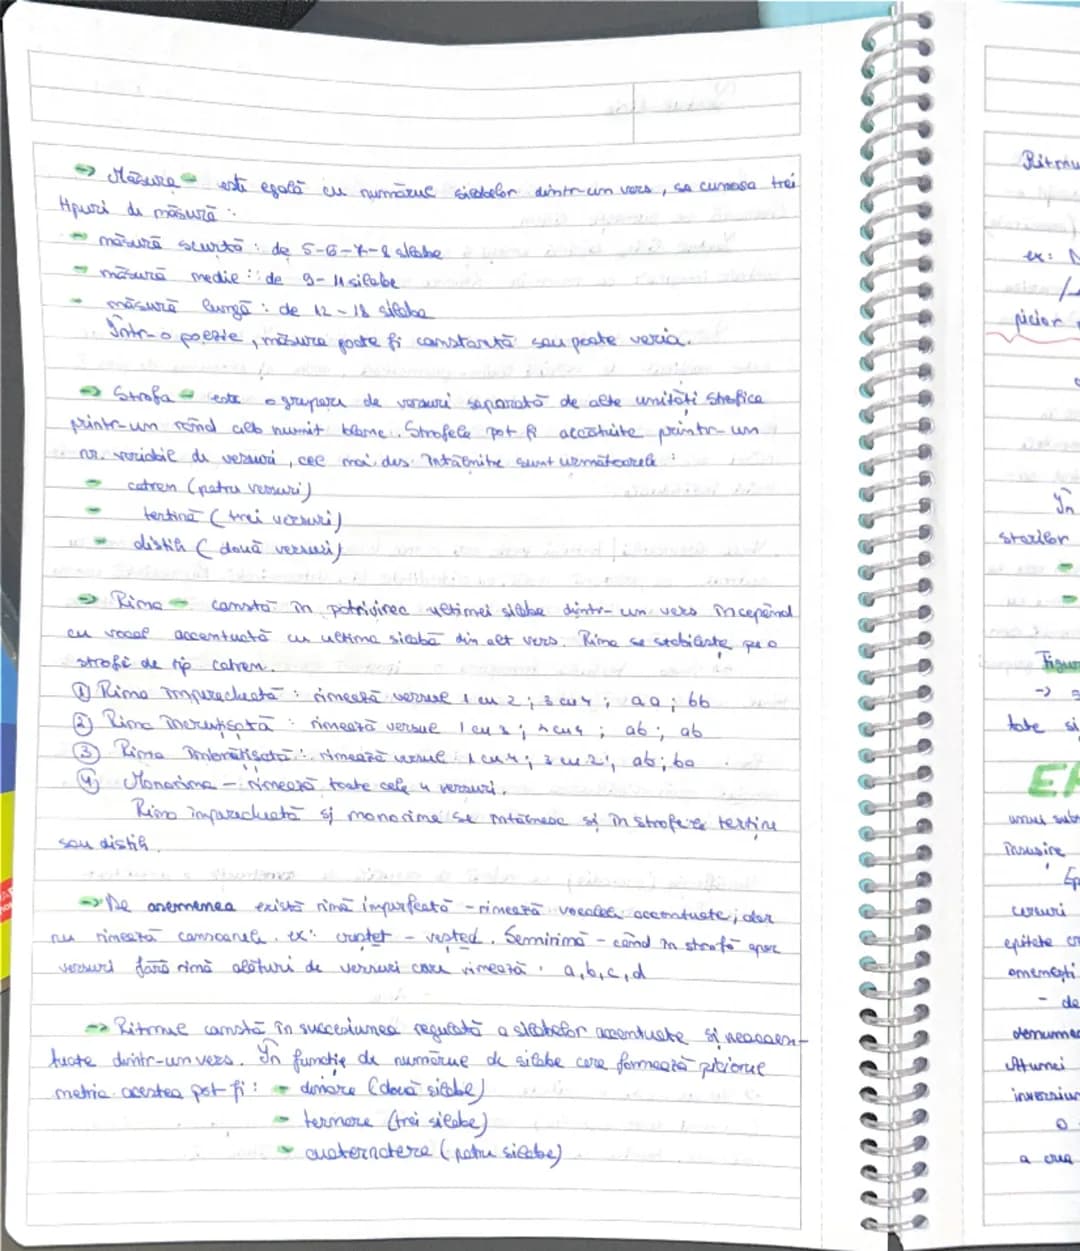 → Măsura - este egală cu numărul silabelor dintr-un vers, se cunosc trei
tipuri de măsură :
- măsură scurtă : de 5-6-7-8 silabe
- măsură medie : de 9-11 silabe
- măsură lungă : de 12-18 silabe
Într-o poezie, măsura poate fi constantă sau poate varia.
→ Strofa - este o grupare de versuri separată de alte unități strofice
printr-un rând alb numit blanc. Strofele pot fi alcătuite printr-un
nr. variabil de versuri, cel mai des întâlnite sunt următoarele :
- catren (patru versuri)
- terțină (trei versuri)
- distih (două versuri)
→ Rima - constă în potrivirea ultimei silabe dintr-un vers începând
cu vocal accentuată cu ultima silabă din alt vers. Rima se stabilește pe o
strofă de tip catren.
① Rima împerecheată : rimează versul 1 cu 2 ; 3 cu 4 ; aa ; bb
② Rima încrucișată : rimează versul 1 cu 3 ; 2 cu 4 ; ab ; ab
③ Rima îmbrățișată : rimează versul 1 cu 4 ; 3 cu 2 ; ab ; ba
④ Monorima - rimează toate cele 4 versuri.
Rima împerecheată și monorima se întâlnesc și în strofele terține
sau distih.
→ De asemenea există rimă imperfectă - rimează vocalele accentuate, dar
nu rimează consoanele. ex: creștet - veșted. Semirimă - când în strofă apar
versuri fără rimă alături de versuri care rimează. a,b,c,d
→ Ritmul constă în succesiunea regulată a silabelor accentuate și neaccen-
tuate dintr-un vers. În funcție de numărul de silabe care formează piciorul
metric acestea pot fi : - binare (două silabe)
- ternare (trei silabe)
- cuaternare (patru silabe)
Ritmu
ex:
picior
În
starilor
Figur
->
toate si
EP
unui sub
însușire
versuri
epitete
omenești
- de
denumea
Ultimei
inversiun
o
a crea